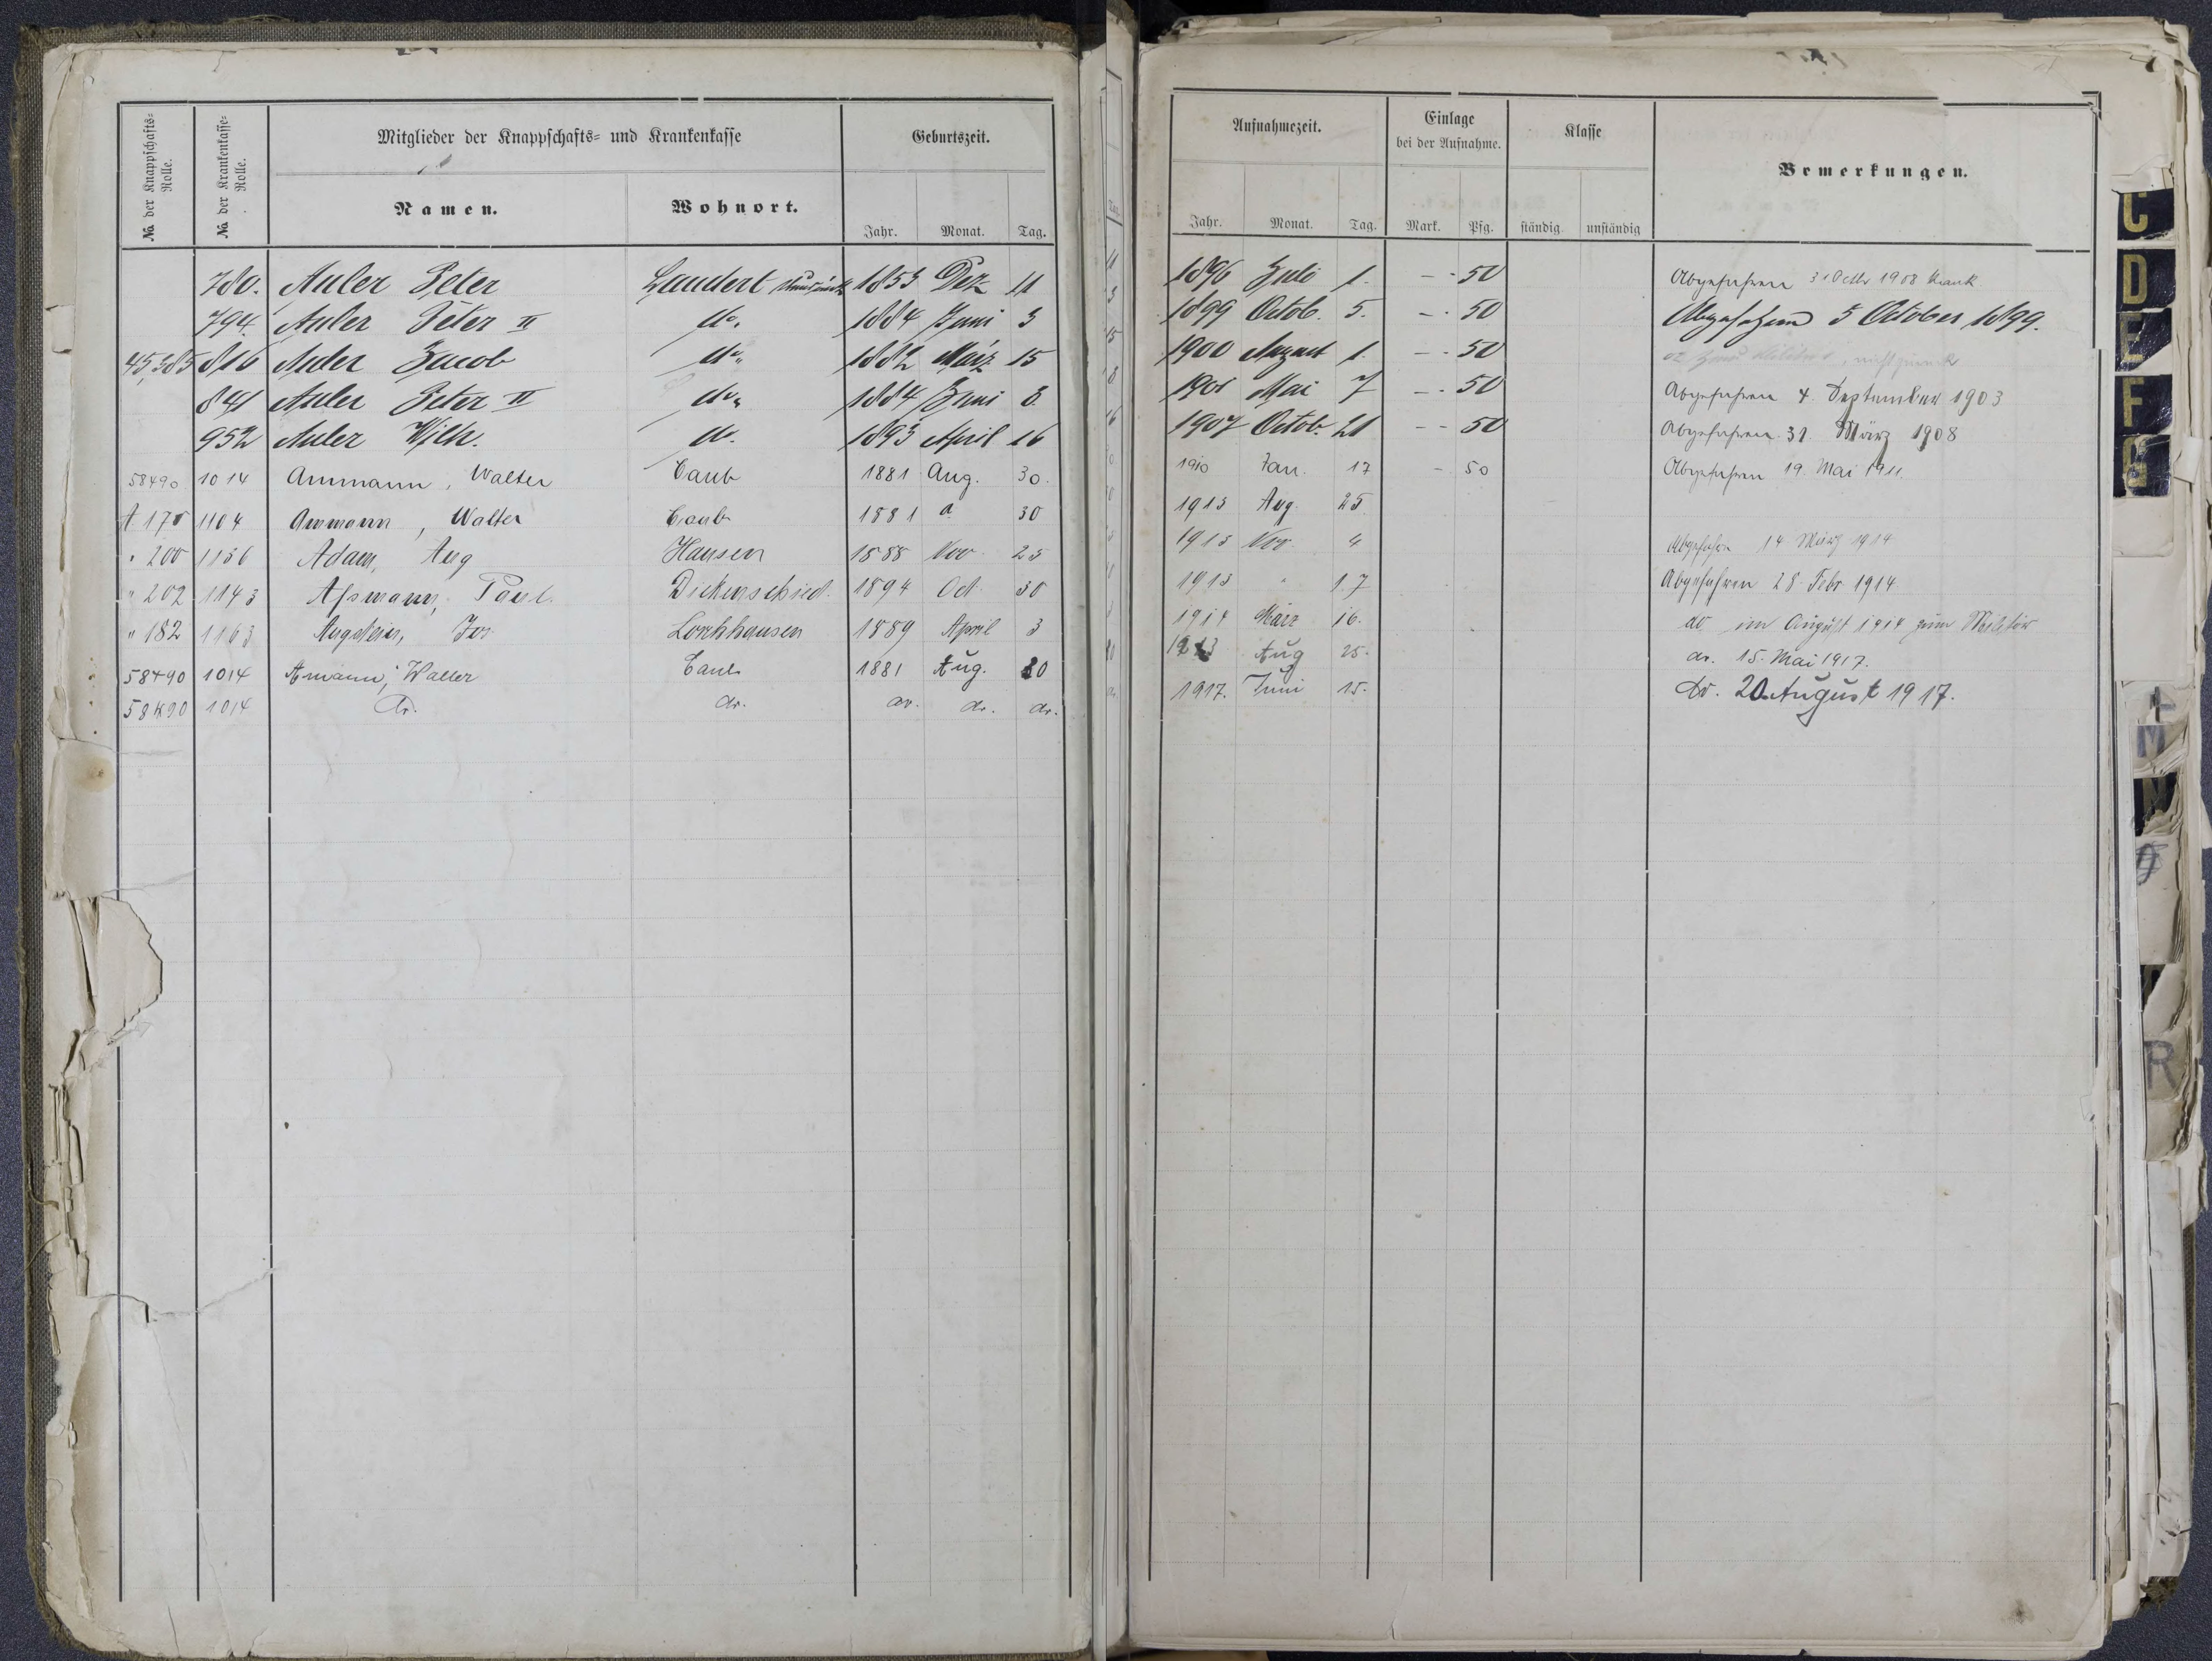 No. der Knappschafts-Rolle. No. der Krankenkasse-Rolle. Mitglieder der Knappschafts- und Krankenkasse Geburtszeit. Aufnahmezeit. Einlage bei der Aufnahme. Klasse Bemerkungen.
Namen. Wohnort. Jahr. Monat. Tag. Jahr. Monat. Tag. Mark. Pfg. ständig unständig
780. Auler Peter Laudert 1853 Dez 11 1896 Juli 1. - - 50 Abgefahren 31 Octbr 1908 krank
794. Auler Peter II do. 1884 Juni 3 1899 Octob. 5. - - 50 Abgefahren 5 October 1899.
45,385 816 Auler Jacob do. 1882 März 15 1900 August 1. - - 50 02 Militär, nicht zurück
841 Auler Peter II do. 1884 Juni 3. 1901 Mai 7 - - 50 Abgefahren 4. September 1903
952 Auler Wilh. do. 1893 April 16 1907 Octob. 21 - - 50 Abgefahren 31. März 1908
58490 1014 Ammann, Walter Caub 1881 Aug. 30. 1910 Jan. 17 - 50 Abgefahren 19. Mai 1911.
A 175 1104 Ammann, Walter Caub 1881 a 30 1913 Aug. 25
" 200 1136 Adam, Aug Hausen 1888 Nov. 25 1913 Nov. 4 Abgefahren 14 März 1914
" 202 1143 Assmann, Paul. Dickenschied. 1894 Oct. 30 1913 " 17 Abgefahren 28. Febr. 1914
" 182 1163 Augstein, Jos Lorchhausen 1889 April 3 1914 März 16. do im August 1914 zum Militär
58490 1014 Amann, Walter Caub 1881 Aug. 30 1913 Aug 25. do. 15. Mai 1917.
58490 1014 do. do. do. do. do. 1917. Juni 15. do. 20. August 1917.
C
D
E
F
G
M
N
R